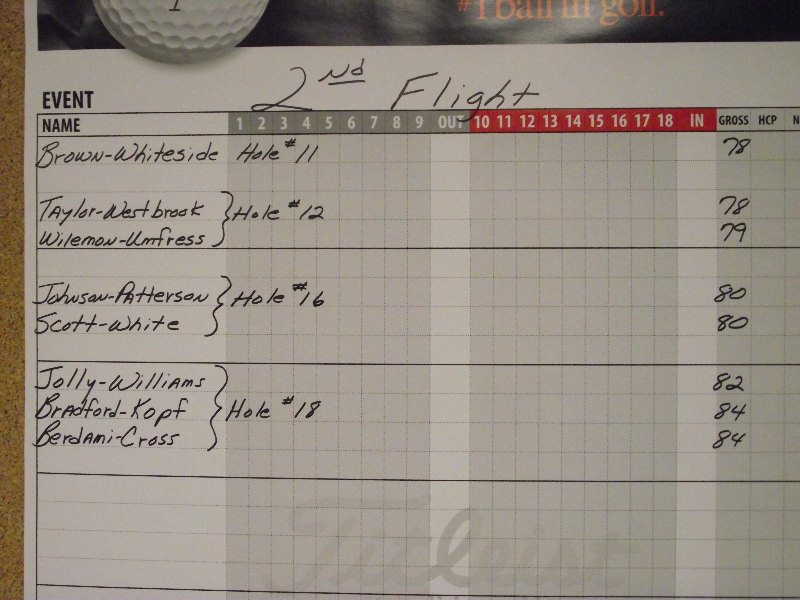 1
#1 ball in golf.
EVENT 2nd Flight
NAME 1 2 3 4 5 6 7 8 9 OUT 10 11 12 13 14 15 16 17 18 IN GROSS HCP N
Brown-Whiteside Hole #11 78
Taylor-Westbrook Hole #12 78
Wilemon-Umfress 79
Johnson-Patterson Hole #16 80
Scott-White 80
Jolly-Williams 82
Bradford-Kopf Hole #18 84
Berdami-Cross 84
Titleist